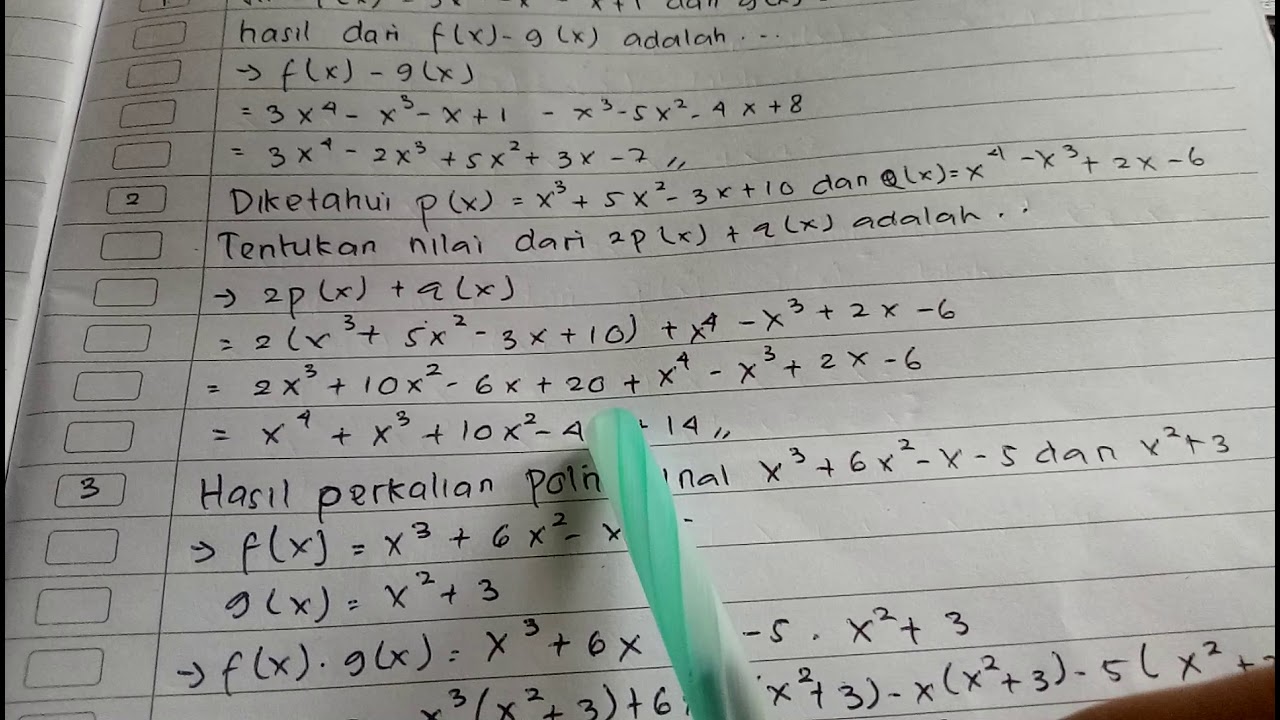 hasil dari f(x) - g(x) adalah...
→ f(x) - g(x)
= 3x⁴ - x³ - x + 1 - x³ - 5x² - 4x + 8
= 3x⁴ - 2x³ + 5x² + 3x - 7 ,,
2 Diketahui p(x) = x³ + 5x² - 3x + 10 dan Q(x) = x⁴ - x³ + 2x - 6
Tentukan nilai dari 2p(x) + q(x) adalah..
→ 2p(x) + q(x)
= 2(x³ + 5x² - 3x + 10) + x⁴ - x³ + 2x - 6
= 2x³ + 10x² - 6x + 20 + x⁴ - x³ + 2x - 6
= x⁴ + x³ + 10x² - 4 + 14 ,,
3 Hasil perkalian x³ + 6x² - x - 5 dan x² + 3
→ f(x) = x³ + 6x² - x
g(x) = x² + 3
→ f(x) . g(x) = x³ + 6x - 5 . x² + 3
x³(x² + 3) + 6 x² + 3) - x(x² + 3) - 5(x² +